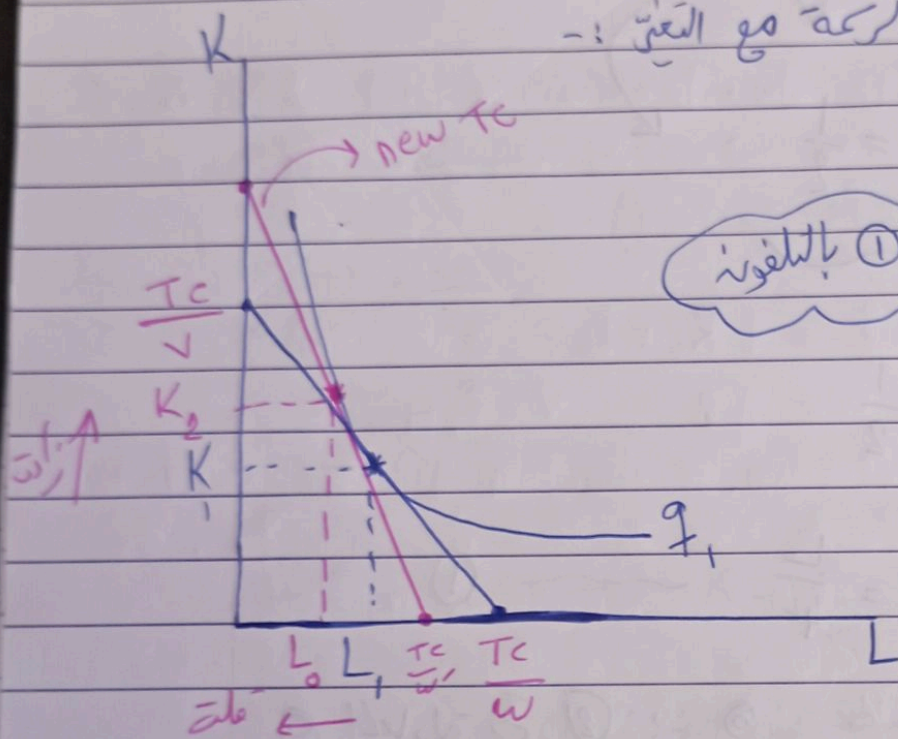 مع التغيّر :-
K
new TC
① بالتلفون
TC
V
K₂
K₁
q₁
L₀ L₁ TC/w' TC/w L